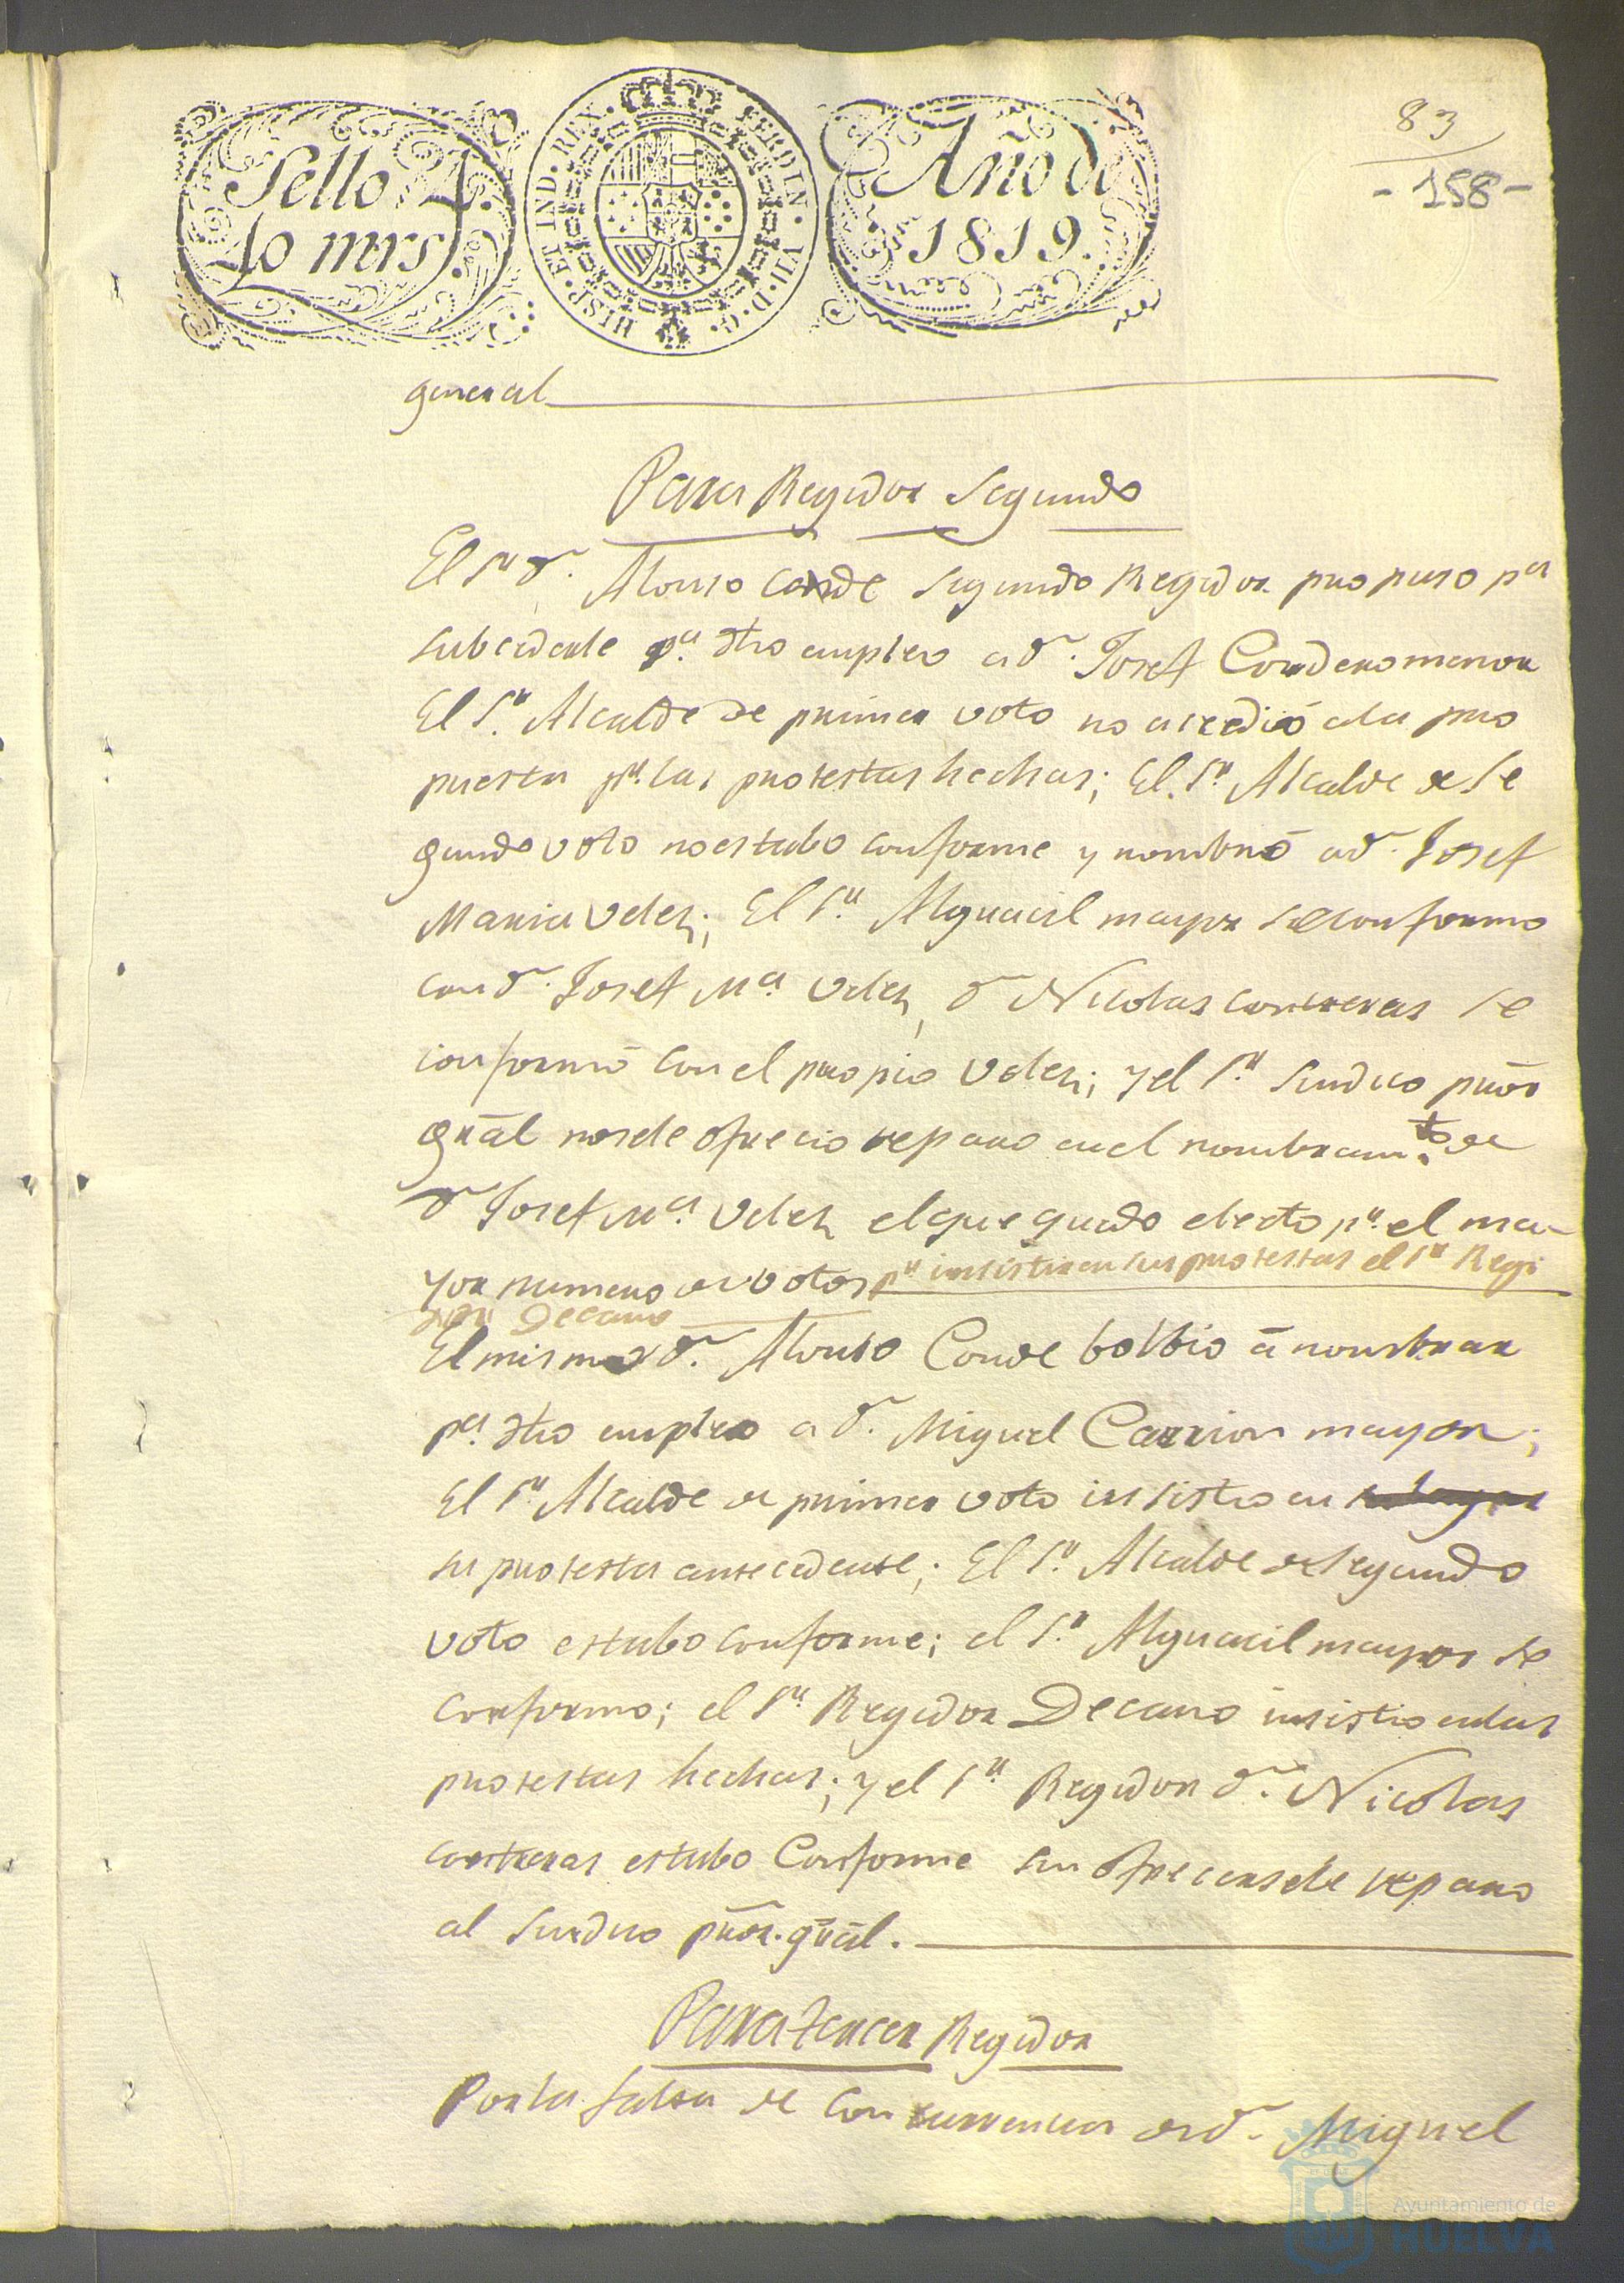 Sello 4º.
40 mrs.
HISP. ET IND. REX. FERDIN. VII. D. G.
Año de
1819.
83
- 158 -
general
Para Regidor Segundo
El Sr. Dn. Alonso Conde Segundo Regidor propuso pa
subcederle pa. dho empleo a Dn. Josef Cordero menor
El Sr. Alcalde de primer voto no accedió a la pro
puesta pr. las protestas hechas; El Sr. Alcalde de Se
gundo voto no estubo conforme y nombró a Dn. Josef
Maria Velez; El Sr. Alguacil mayor se conformo
con Dn. Josef Ma. Velez, Dn Nicolas Contreras se
conformó con el propio Velez; y el Sr. Sindico prõr
grãl no se le ofrecio reparo en el nombramto. de
Dn Josef Ma. Velez el que quedo electo pr. el ma-
yor numero de votos pr insistir en sus protestas el Sr Regi
dor Decano
El mismo Dn. Alonso Conde bolbio á nombrar
pa. dho empleo a Dn. Miguel Carrion mayor;
El Sr. Alcalde de primer voto insistio en
su protesta antecedente; El Sr. Alcalde de Segundo
voto estubo conforme; el Sr. Alguacil mayor se
conformo; el Sr. Regidor Decano insistio en las
protestas hechas; y el Sr. Regidor Dn. Nicolas
Contreras estubo Conforme sin ofrecersele reparo
al Sindico prõr. grãl.
Para tercer Regidor
Por la falta de Concurrencia de Dn. Miguel
Ayuntamiento de
HUELVA